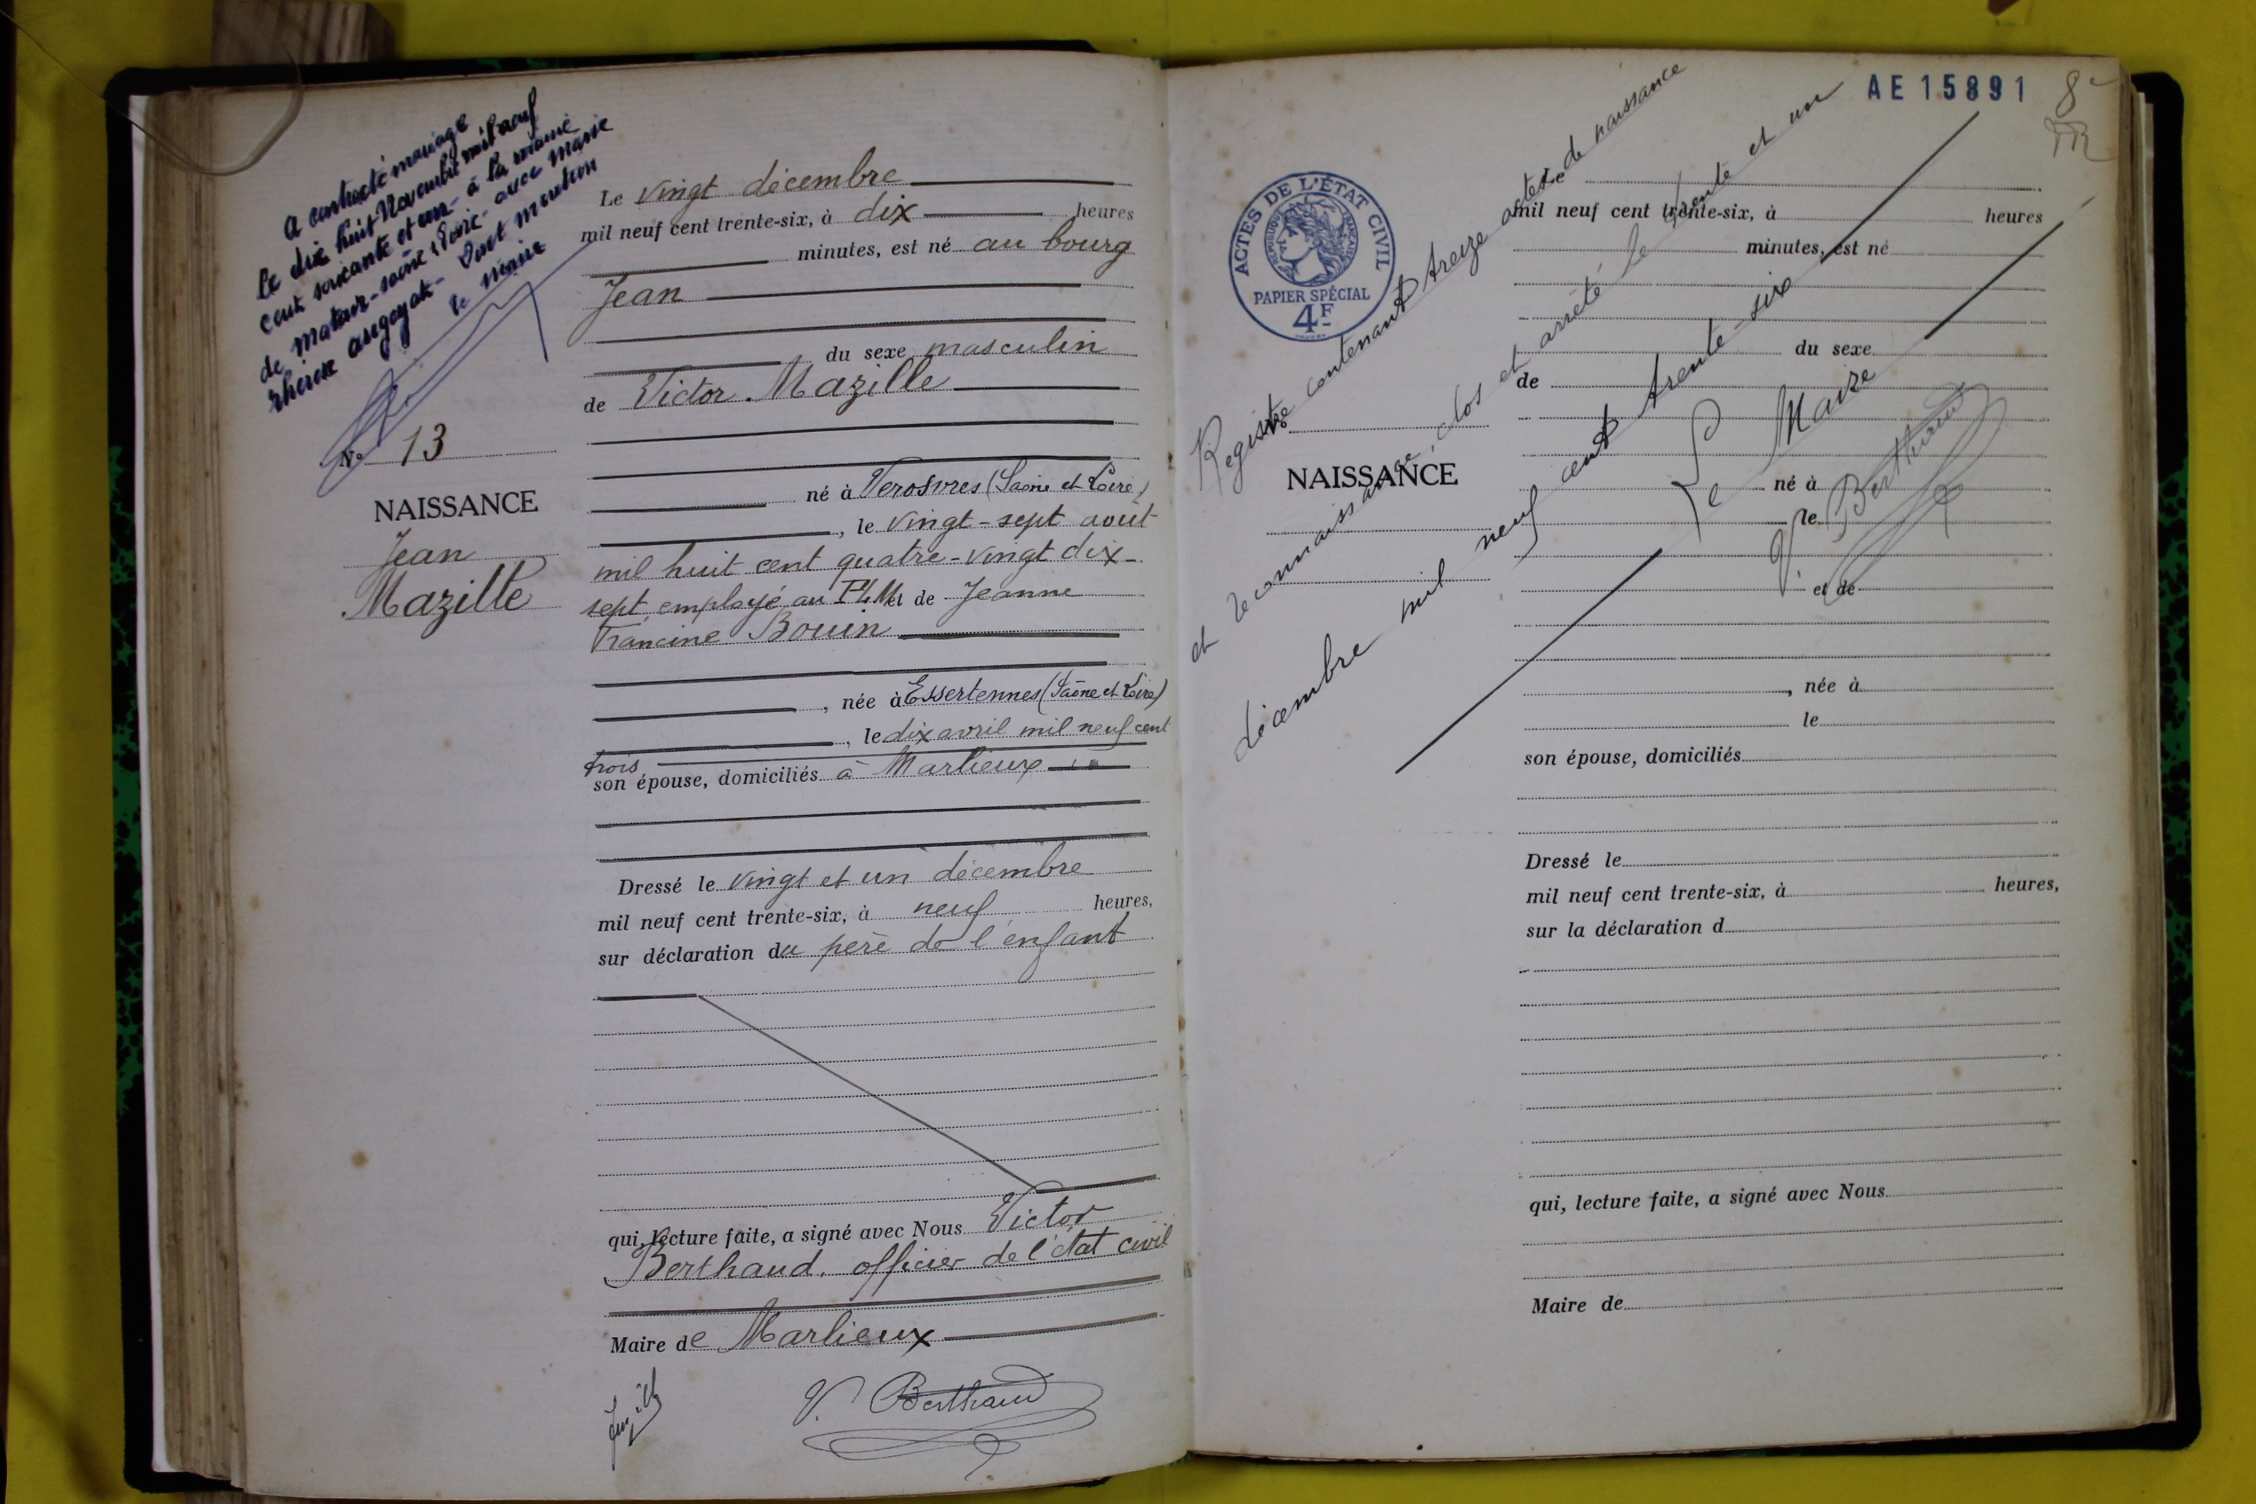 a contracté mariage
le dix huit Novembre mil neuf
cent soixante et un - à la mairie
de Matour - saône & Loire - avec Marie
thérèse augoyat - Dont mention
le maire
N° 13
NAISSANCE
Jean
Mazille
Le vingt décembre
mil neuf cent trente-six, à dix heures
minutes, est né au bourg
Jean
du sexe masculin
de Victor Mazille
né à Verosvres (Saône et Loire)
, le vingt-sept août
mil huit cent quatre-vingt dix-
sept, employé au PLM et de Jeanne
Francine Bouin
, née à Essertennes (Saône et Loire)
, le dix avril mil neuf cent
trois
son épouse, domiciliés à Marlieux
Dressé le vingt et un décembre
mil neuf cent trente-six, à neuf heures,
sur déclaration du père de l'enfant
qui, lecture faite, a signé avec Nous Victor
Berthaud, officier de l'état civil
Maire de Marlieux
V. Berthaud
AE 15891
8e
ACTES DE L'ÉTAT CIVIL
RÉPUBLIQUE FRANÇAISE
PAPIER SPÉCIAL
4F
Registre contenant treize actes de naissance
et reconnaissance, clos et arrêté le trente et un
décembre mil neuf cent trente-six
Le Maire
V. Berthaud
N°
NAISSANCE
Le
mil neuf cent trente-six, à heures
minutes, est né
du sexe
de
né à
, le
et de
, née à
le
son épouse, domiciliés
Dressé le
mil neuf cent trente-six, à heures,
sur la déclaration d
qui, lecture faite, a signé avec Nous
Maire de